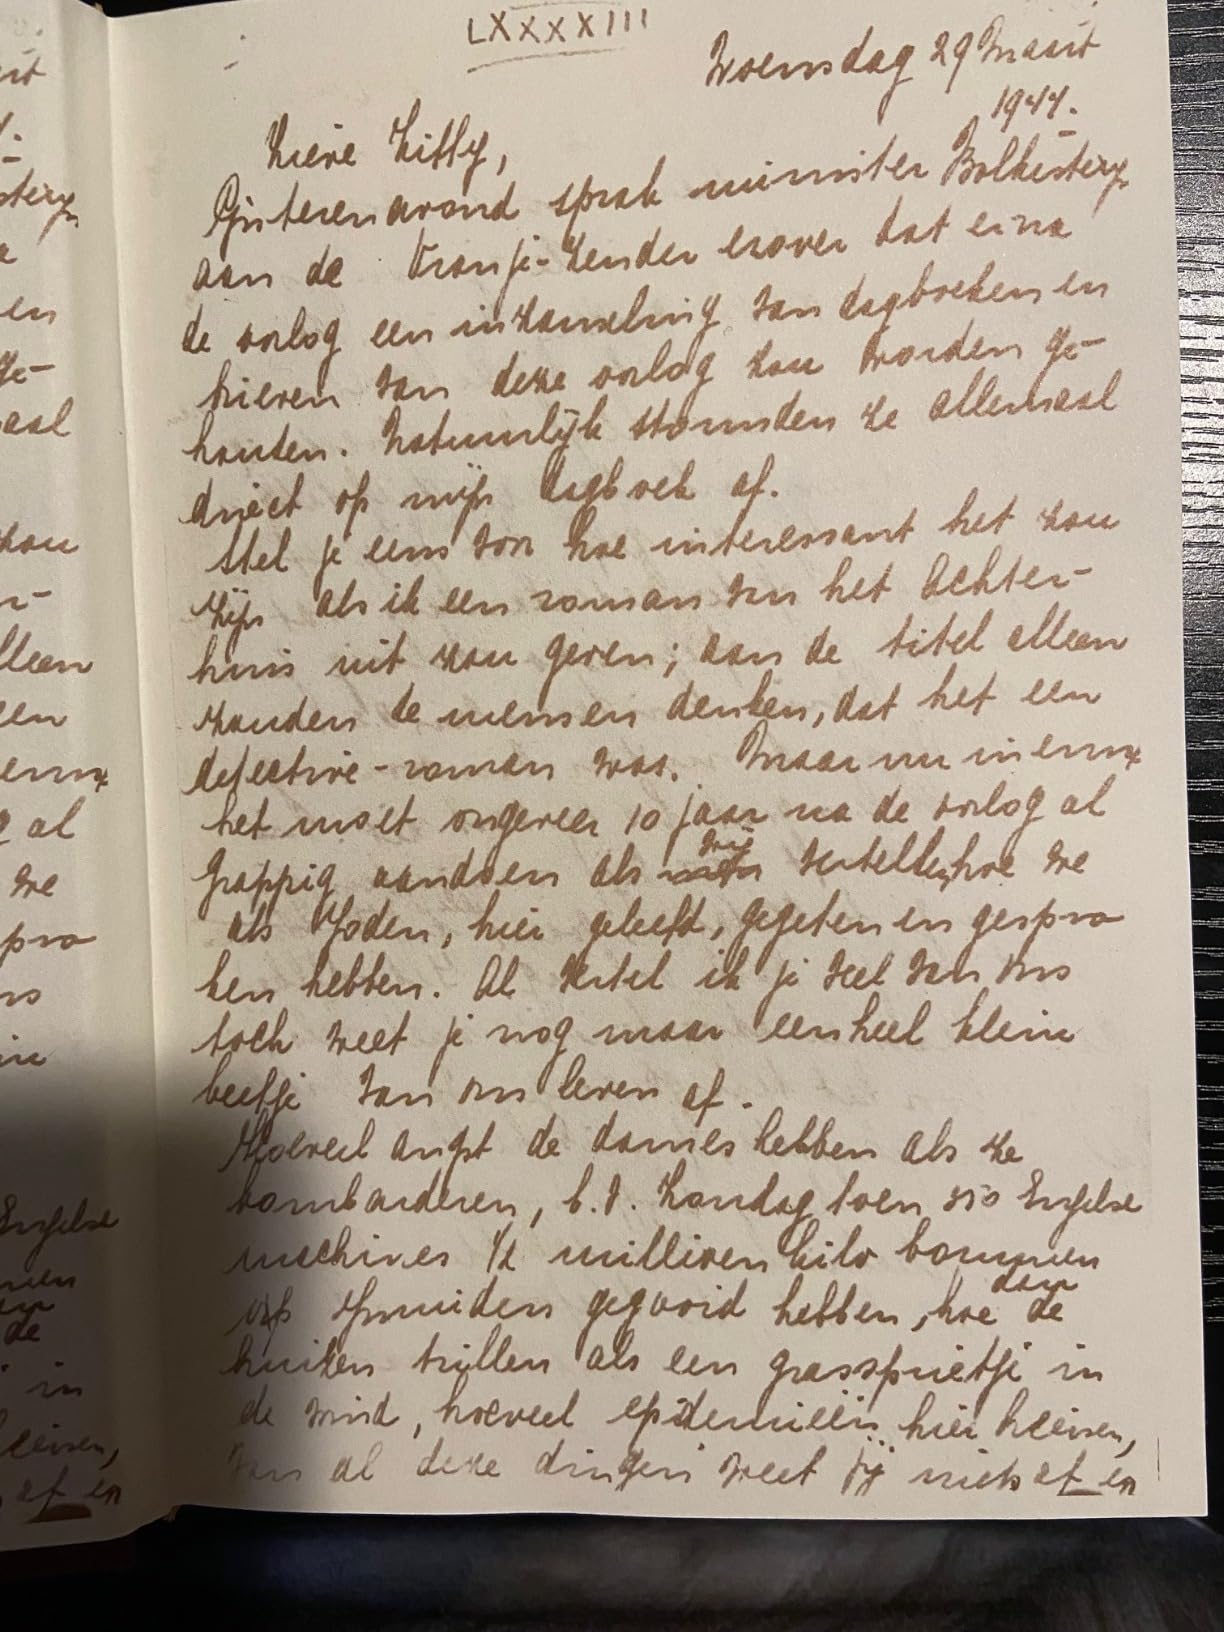 LXXXXIII
Woensdag 29 Maart
1944.
Lieve Kitty,
Gisterenavond sprak minister Bolkesteyn
aan de Oranje-zender erover dat er na
de oorlog een inzameling van dagboeken en
brieven van deze oorlog zou worden ge-
houden. Natuurlijk stormden ze allemaal
direct op mijn dagboek af.
Stel je eens voor hoe interessant het zou
zijn als ik een roman van het Achter-
huis uit zou geven; aan de titel alleen
zouden de mensen denken, dat het een
detective-roman was. Maar nu in ernst
het moet ongeveer 10 jaar na de oorlog al
grappig aandoen als wij vertellen, hoe we
als Joden, hier geleefd, gegeten en gespro
ken hebben. Al vertel ik je veel van ons
toch weet je nog maar een heel klein
beetje van ons leven af.
Hoeveel angst de dames hebben als ze
bombarderen, b.v. Zondag toen 350 Engelse
machines ½ millioen kilo bommen
op Ijmuiden gegooid hebben, hoe dan de
huizen trillen als een grassprietje in
de wind, hoeveel epidemieën hier heersen,
van al deze dingen weet jij niets af en